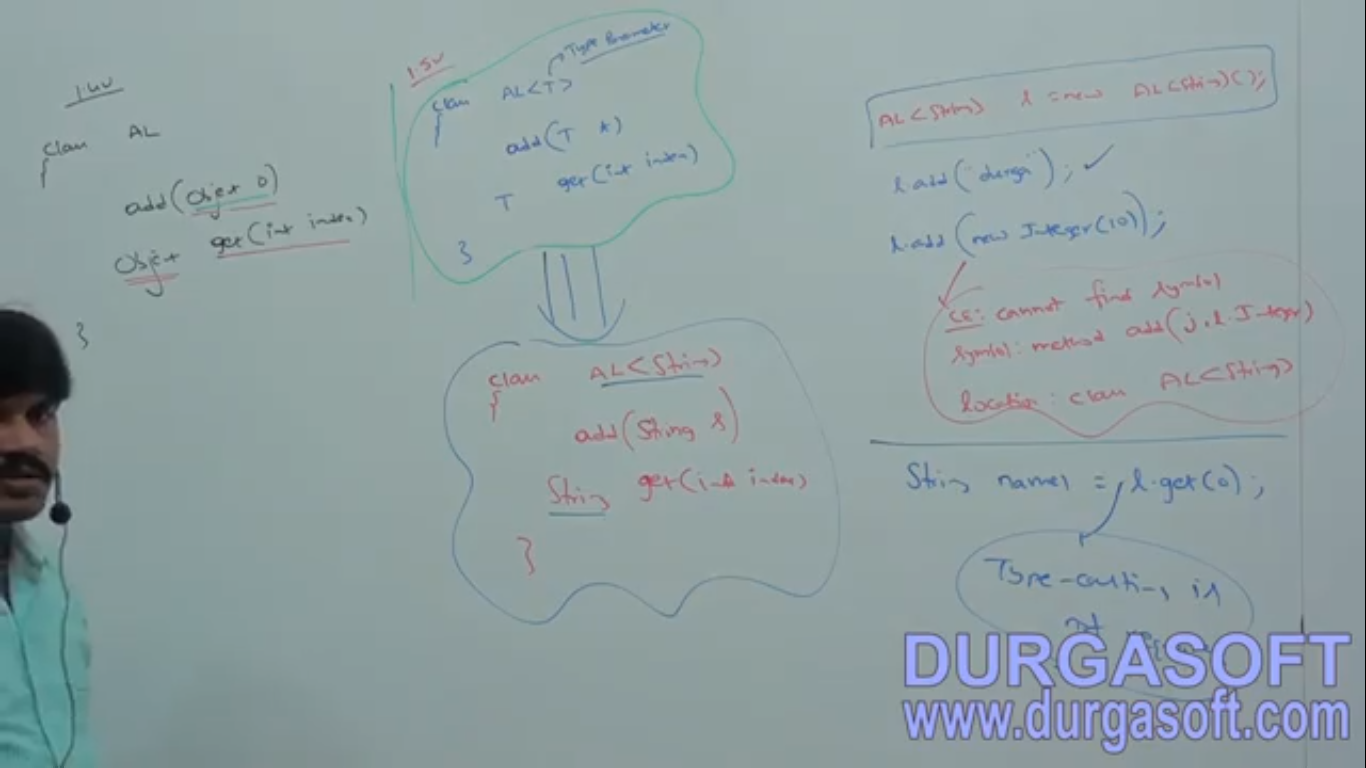 1.4v
class AL
{
add(Object o)
Object get(int index)
}
1.5v
Type Parameter
class AL<T>
{
add(T t)
T get(int index)
}
class AL<String>
{
add(String s)
String get(int index)
}
AL<String> l = new AL<String>();
l.add("durga"); ✓
l.add(new Integer(10));
CE: cannot find symbol
symbol: method add(j.l.Integer)
location: class AL<String>
String name1 = l.get(0);
Type-casting is
not
DURGASOFT
www.durgasoft.com